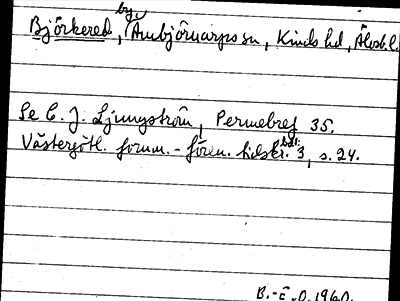 Björkered, by, Ambjörnarps sn, Kinds hd, Älvsb.l.
Se C. J. Ljungström, Permebref 35.
Västergötl. fornm.-fören. tidskr. bd 1: 3, s. 24.
B.-E. O. 1960.